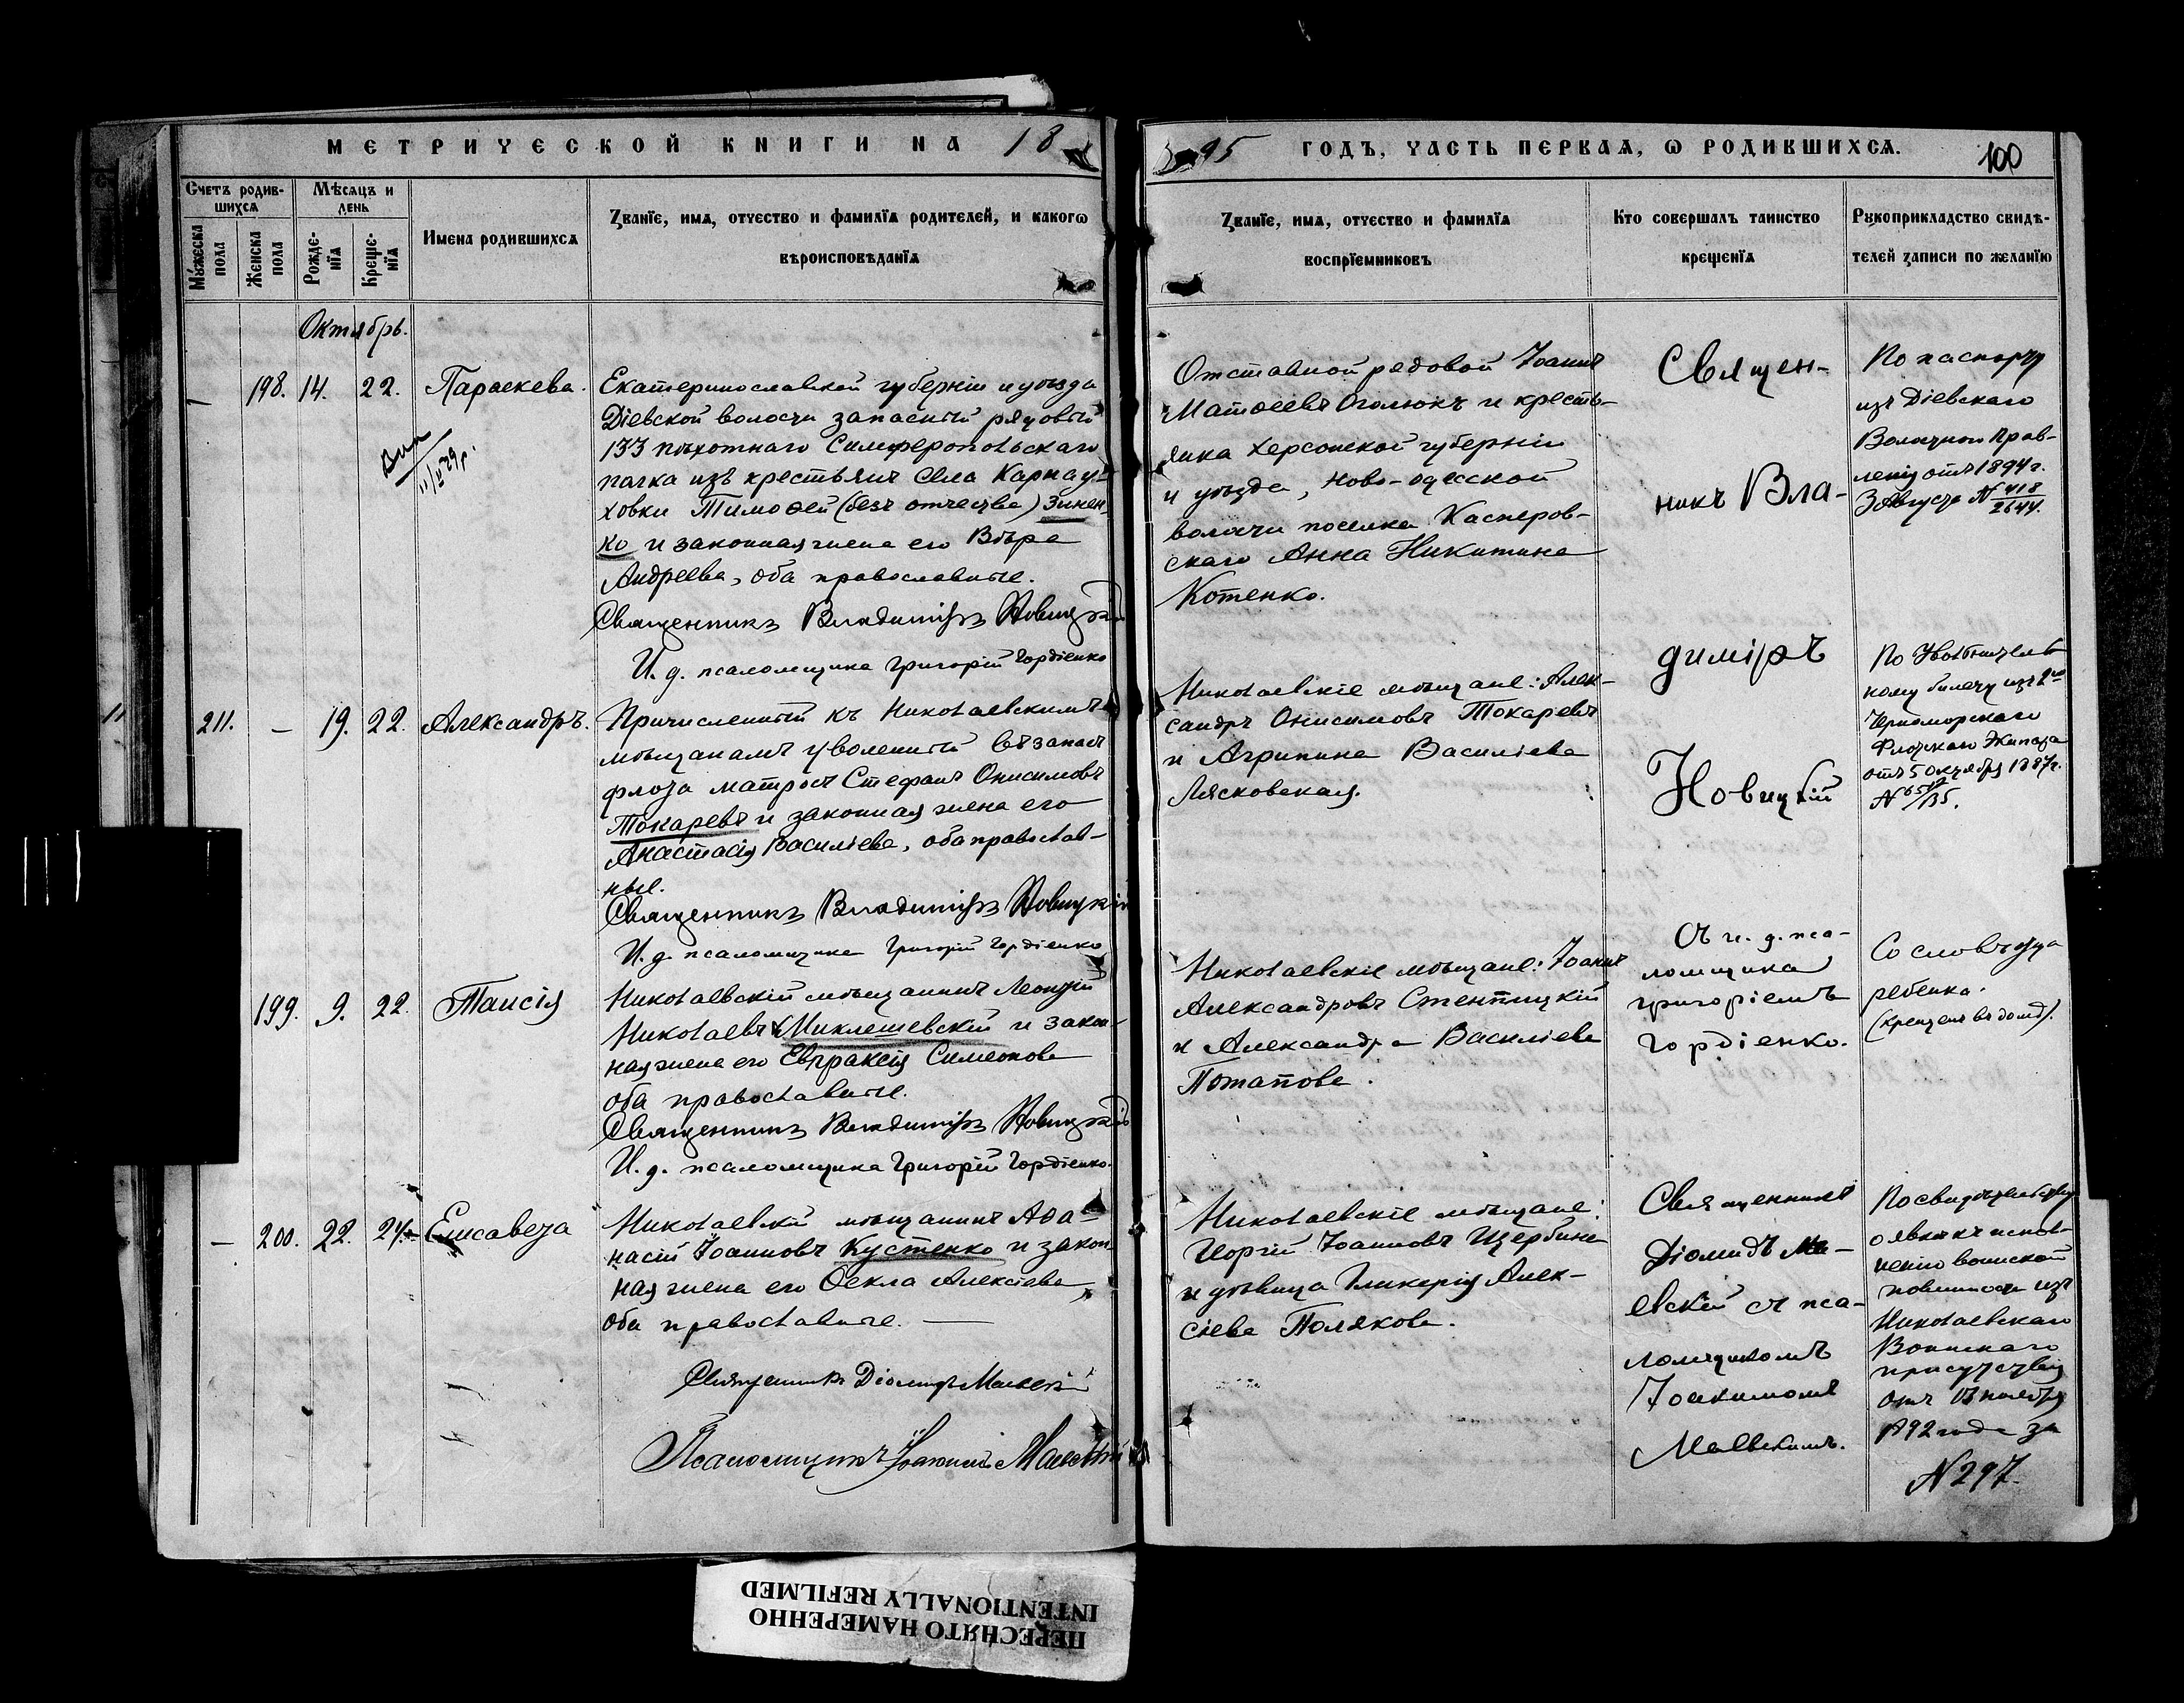 МЕТРИЧЕСКОЙ КНИГИ НА 18
95 ГОДЪ, ЧАСТЬ ПЕРВАЯ, Ѡ РОДИВШИХСЯ.
100
Счетъ родив-
шихся
Мѣсяцъ и
день
Мужеска
пола
Женска
пола
Рожде-
нія
Креще-
нія
Имена родившихся
Званіе, имя, отчество и фамилія родителей, и какогѡ
вѣроисповѣданія
Званіе, имя, отчество и фамилія
воспріемниковъ
Кто совершалъ таинство
крещенія
Рукоприкладство свидѣ-
телей записи по желанію
Октябрь.
– 198. 14. 22. Параскева.
11/V 29 г.
Екатеринославской губерніи и уѣзда
Діевской волости запасный рядовый
133 пѣхотнаго Симферопольскаго
полка изъ крестьянъ села Карнау-
ховки Тимоѳей (безъ отчества) Зинен-
ко и законная жена его Вѣра
Андреева, оба православные.
Священникъ Владиміръ Новицкій
И. д. псаломщика Григорій Гордіенко
Отставной рядовой Іоаннъ
Матѳеевъ Оголюкъ и кресть-
янка Херсонской губерніи
и уѣзда, Ново-одесской
волости поселка Касперов-
скаго Анна Никитина
Котенко.
Священ-
никъ Вла-
диміръ
Новицкій
По паспорту
изъ Діевскаго
Волостного Прав-
ленія отъ 1894 г.
3 Августа N 418/2644.
211. – 19. 22. Александръ.
Причисленный къ Николаевскимъ
мѣщанамъ уволенный въ запасъ
флота матросъ Стефанъ Онисимовъ
Токаревъ и законная жена его
Анастасія Василіева, оба православ-
ные.
Священникъ Владиміръ Новицкій
И. д. псаломщика Григорій Гордіенко
Николаевскіе мѣщане: Алек-
сандръ Онисимовъ Токаревъ
и Агрипина Василіева
Лясковская.
По Увольнитель
ному билету изъ 2го
Черноморскаго
Флотскаго Экипажа
отъ 5 октября 1887 г.
199. 9. 22. Таисія
Николаевскій мѣщанинъ Леонтій
Николаевъ Миклешевскій и закон-
ная жена его Евпраксія Симеонова
оба православные.
Священникъ Владиміръ Новицкій
И. д. псаломщика Григорій Гордіенко.
Николаевскіе мѣщане: Іоаннъ
Александровъ Стентицкій
и Александра Василіева
Потапова.
Съ и. д. пса-
ломщика
Григоріемъ
Гордіенко.
Со словъ отца
ребенка.
(крещенъ въ дому).
– 200. 22. 24. Елисавета
Николаевскій мѣщанинъ Аѳа-
насій Іоанновъ Кустенко и закон-
ная жена его Ѳекла Алексіева,
оба православные.
Священникъ Діомидъ Маевскій
Псаломщикъ Іоакимъ Маевскій
Николаевскіе мѣщане:
Георгій Іоанновъ Щербина
и дѣвица Гликерія Алек-
сіева Полякова.
Священникъ
Діомидъ Ма-
евскій съ пса-
ломщикомъ
Іоакимомъ
Маевскимъ.
По свидѣтельству
о явкѣ къ испол-
ненію воинской
повинности изъ
Николаевскаго
Воинскаго
присутствія
отъ 13 ноября
1892 года за
N 297.
ПЕРЕСНЯТО НАМЕРЕННО
INTENTIONALLY REFILMED